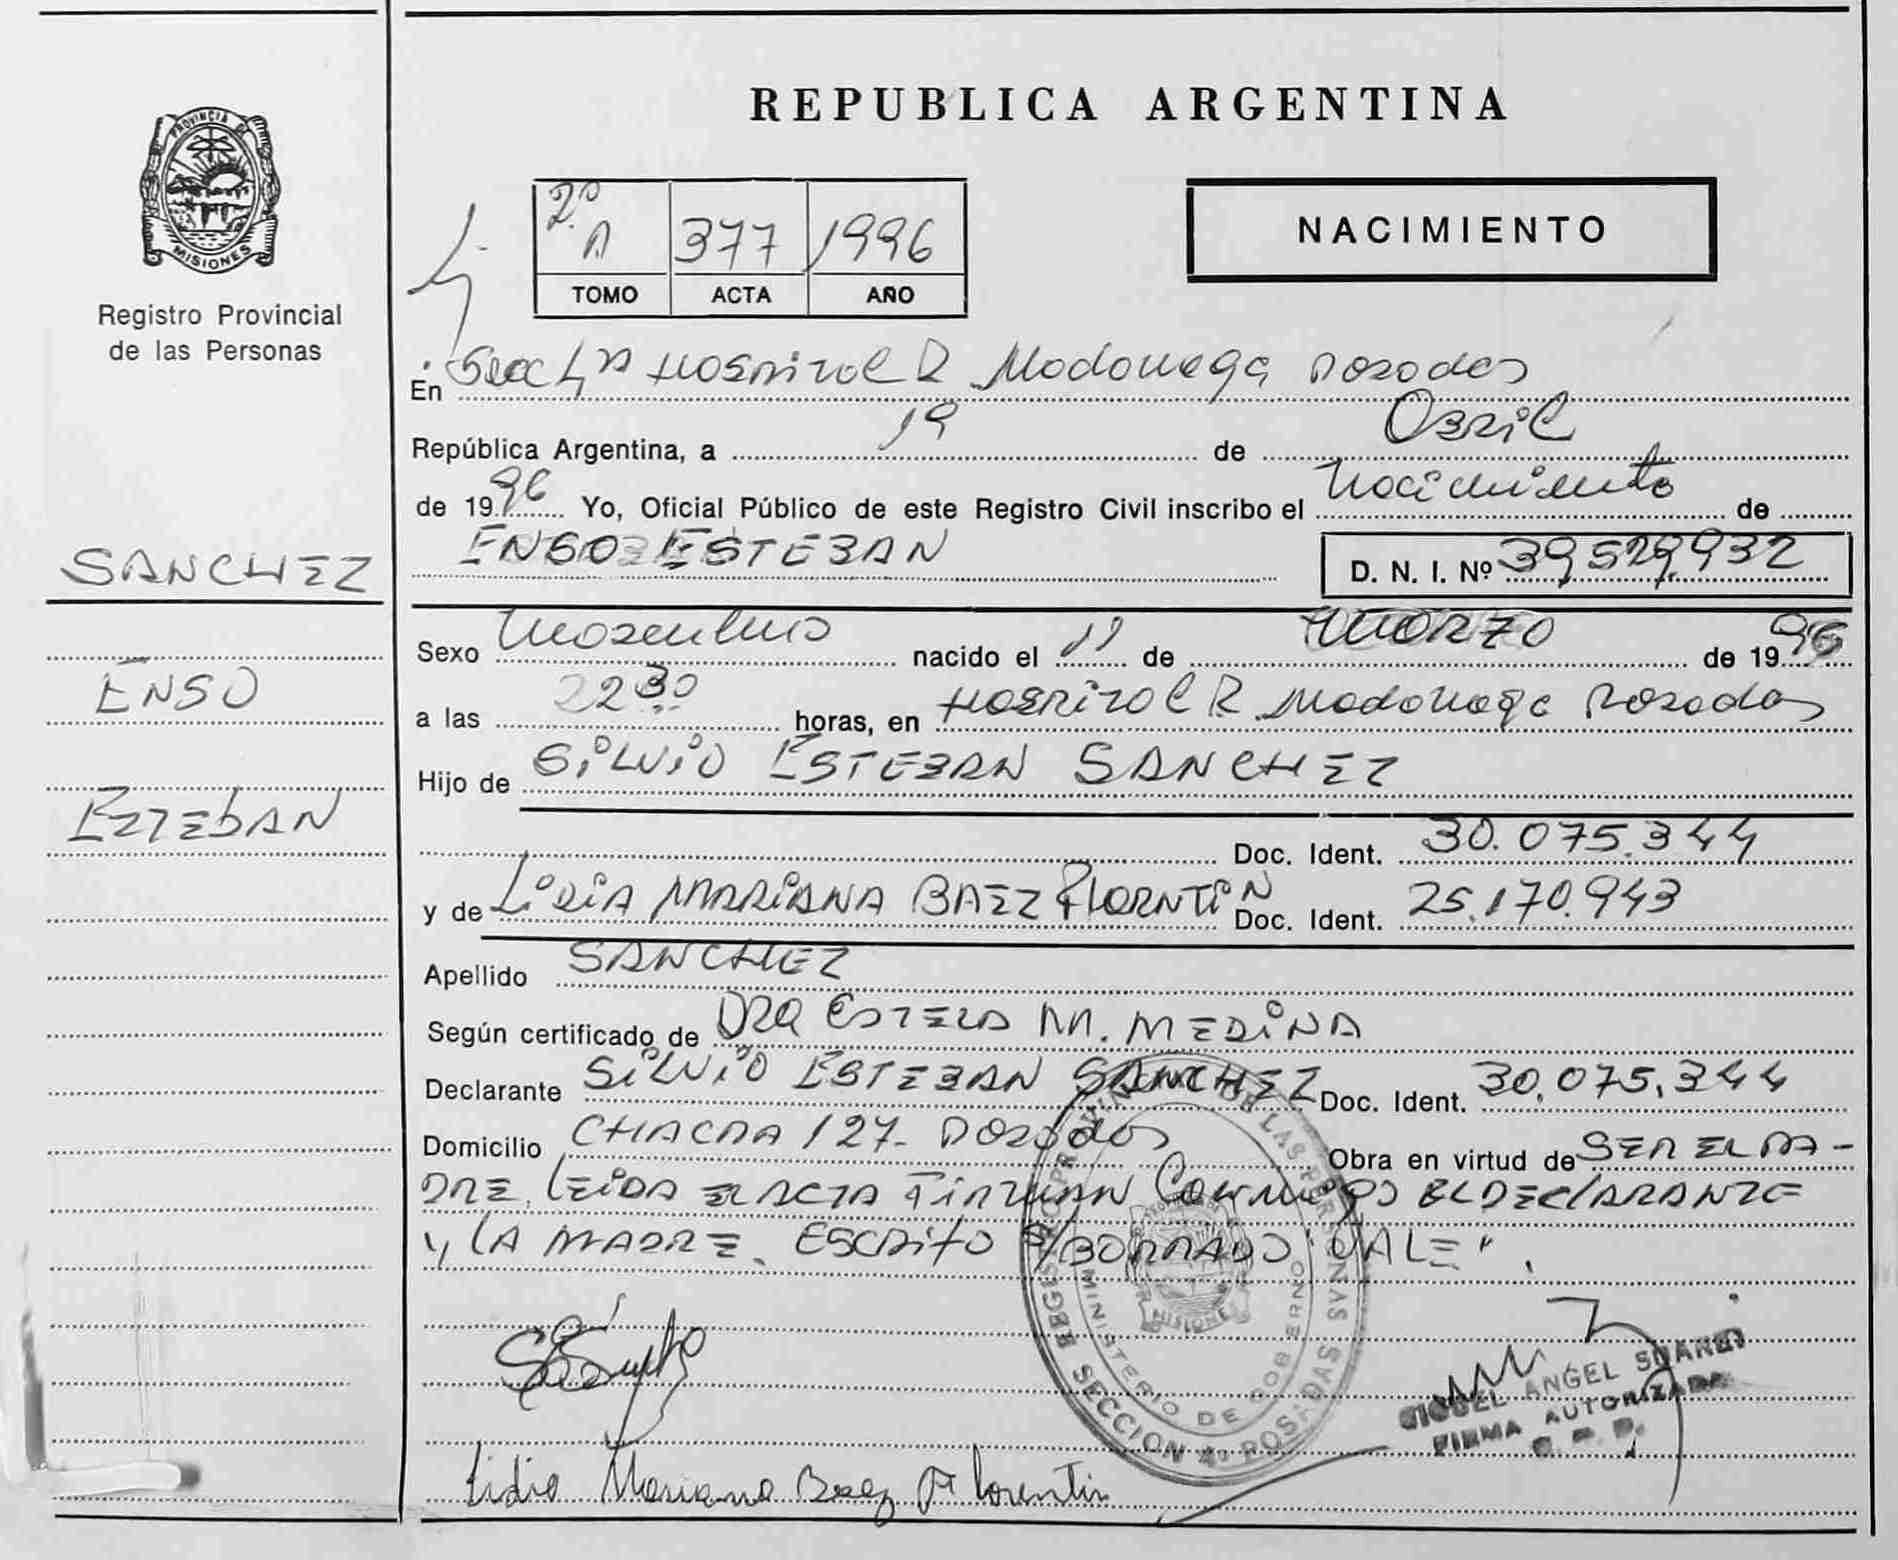 PROVINCIA DE
MISIONES
Registro Provincial
de las Personas
SANCHEZ
ENSO
ESTEBAN
REPUBLICA ARGENTINA
2º A 377 1996
TOMO ACTA AÑO
NACIMIENTO
En Secc 4ta Hospital R Madariaga Posadas
República Argentina, a 19 de Abril
de 1996 Yo, Oficial Público de este Registro Civil inscribo el Nacimiento de
ENSO ESTEBAN D. N. I. Nº 39,529,932
Sexo Masculino nacido el 11 de Marzo de 1996
a las 2230 horas, en Hospital R. Madariaga Posadas
Hijo de SILVIO ESTEBAN SANCHEZ
Doc. Ident. 30.075.344
y de LIDIA MARIANA BAEZ FLORNTIN Doc. Ident. 25.170.943
Apellido SANCHEZ
Según certificado de DRA ESTELA M. MEDINA
Declarante SILVIO ESTEBAN SANCHEZ Doc. Ident. 30.075.344
Domicilio CHACRA 127- Posadas Obra en virtud de SER EL PA-
DRE. LEIDA EL ACTA FIRMAN CONMIGO EL DECLARANTE
Y LA MADRE. ESCRITO S/BORRADO: VALE".
REGISTRO PROVINCIAL DE LAS PERSONAS
SECCION 4º POSADAS
MINISTERIO DE GOBIERNO
MISIONES
MIGUEL ANGEL SUAREZ
FIRMA AUTORIZADA
Lidia Mariana Baez Florentin